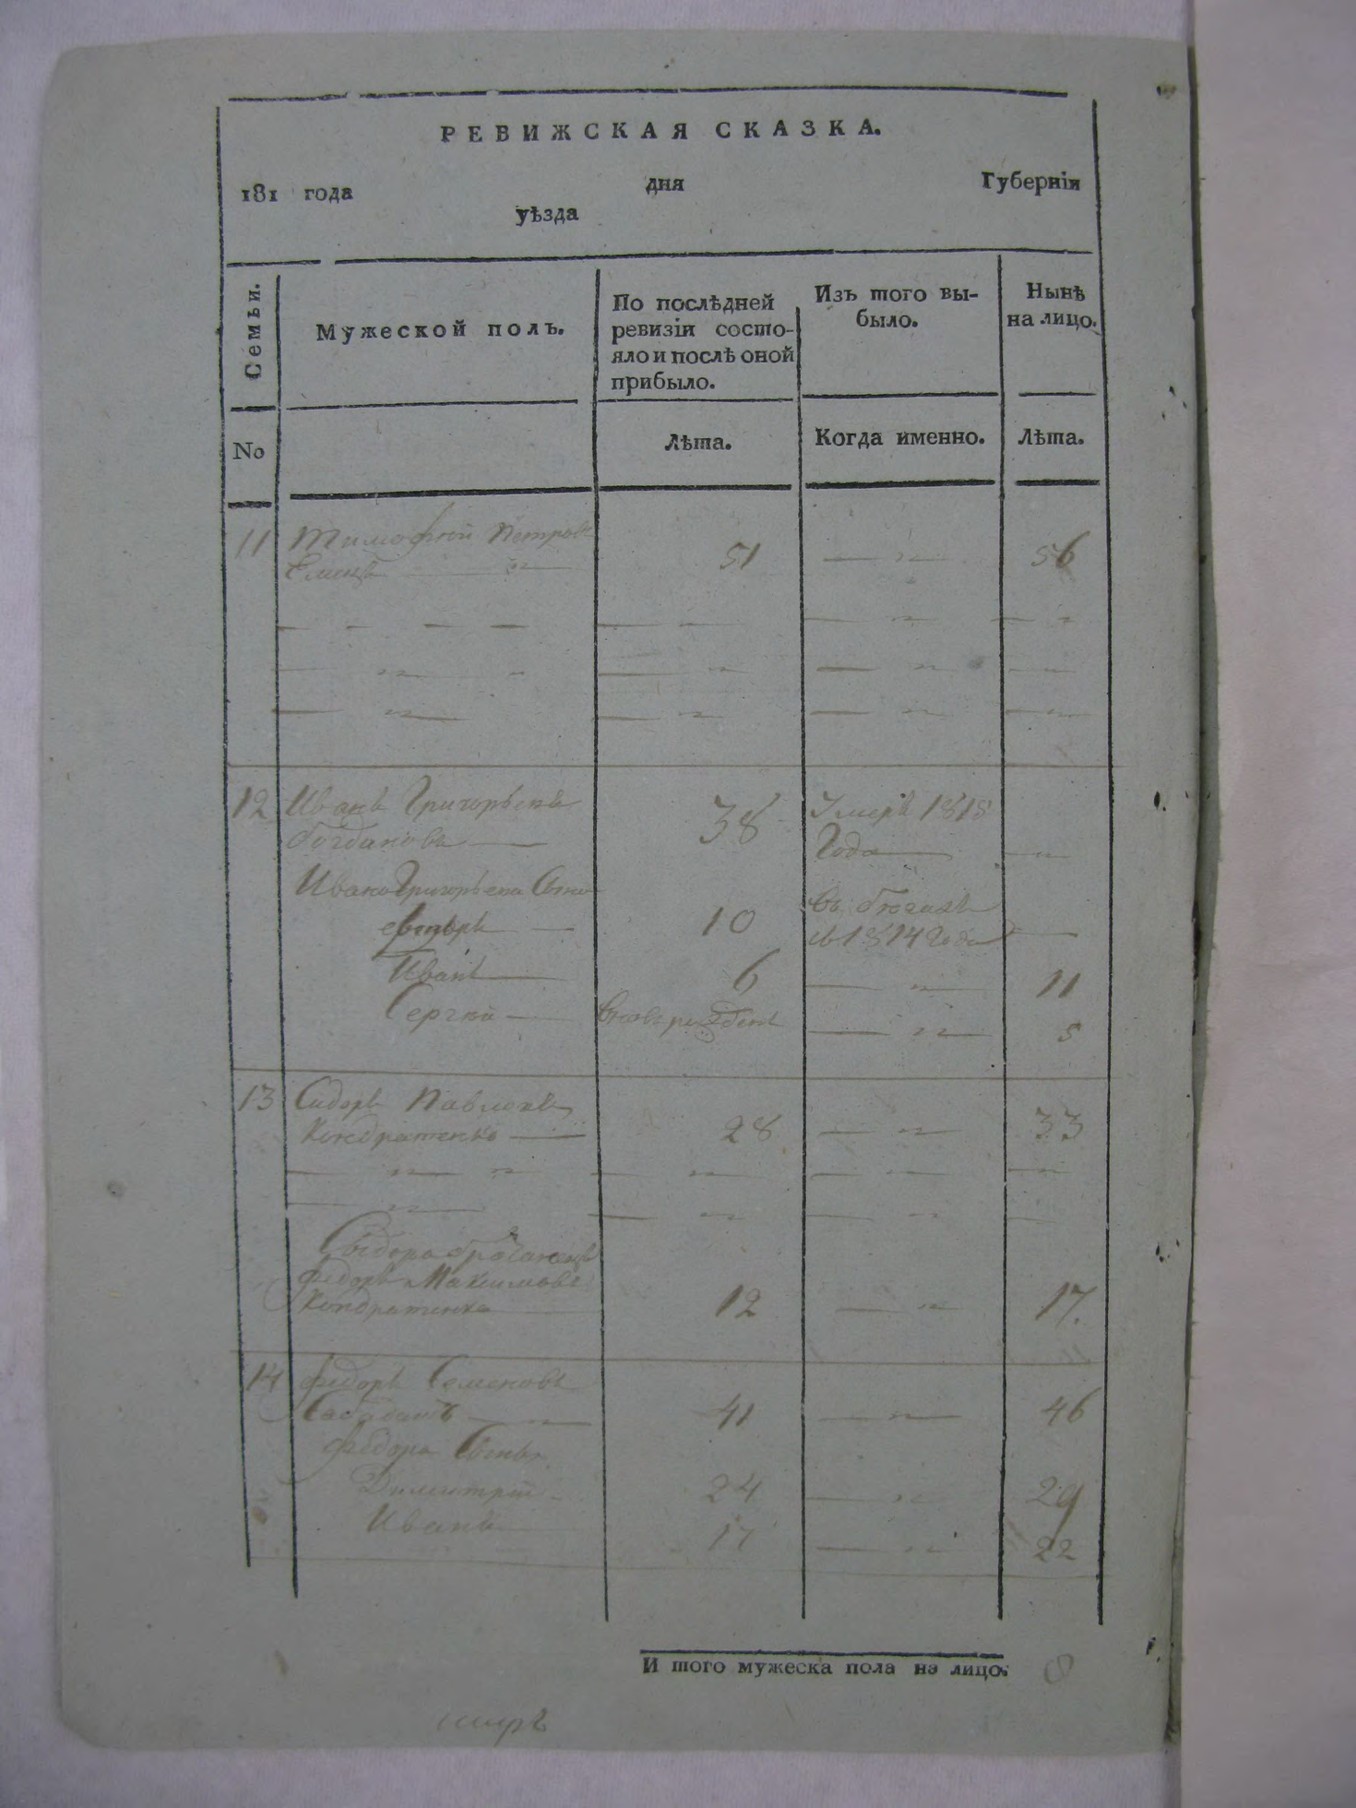 РЕВИЖСКАЯ СКАЗКА.
181 года дня Губерніи
уѣзда
Семьи.
Мужеской полъ.
По послѣдней ревизіи состояло и послѣ оной прибыло.
Изъ того выбыло.
Нынѣ на лицо.
No
Лѣта. Когда именно. Лѣта.
11 Тимофей Петровъ
51 — „ — 56
12 Иванъ Григорьевъ
Богдановъ — 38 Умеръ 1815 Года — „
Ивана Григорьева Сыно
10 въ бегахъ
съ 1814 Года —
Иванъ — 6 — „ — 11
Сергей — вновь рожденъ — „ — 5
13 Сидоръ Павловъ
Кондратенко — 28 — „ — 33
Сидора
Федоръ Максимовъ
Кондратенко 12 — „ — 17.
14 Федоръ Семеновъ
41 — „ — 46
Федора Сынъ
Димитрій — 24 — „ 29
Иванъ — 17 — „ 22
И того мужеска пола на лицо. 8